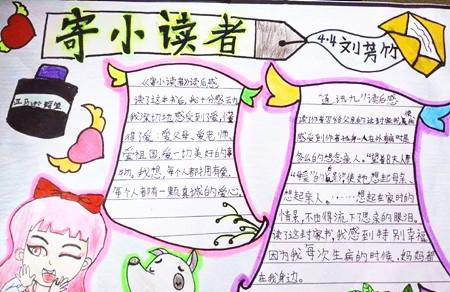 寄小读者
4.4刘芳竹
《寄小读者》读后感
读了这本书后,我十分感动
我深切地感受到了爱,懂
得了爱:爱父母、爱老师、
爱祖国,爱一切美好的事
物。我想,每个人都拥有爱,
每个人都有一颗真诚的爱心
"通讯九"读后感
读了作者写给父亲的这封家书,我
感受到作者独身一人在外有病时是
多么的想念亲人。
的 使她想起母亲、
想起亲人。……想起在家时的
情景,不由得流下了思亲的眼泪。
读了这封家书,我感到特别幸福
因为我每次生病的时候,妈妈都
在我身边。